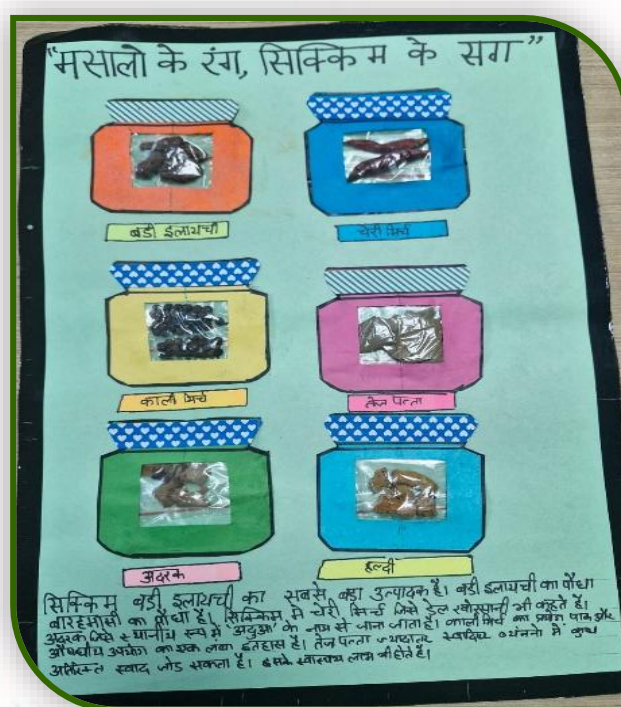 "मसालो के रंग, सिक्किम के सग"
बडी इलायची
चेरी मिर्च
काली मिर्च
तेज पत्ता
अदरक
हल्दी
सिक्किम बडी इलायची का सबसे बडा उत्पादक है। बडी इलायची का पौधा
बारहमासी का पौधा है। सिक्किम मे चेरी मिर्च जिसे डेल खोरसानी भी कहते है।
अदरक जिसे स्थानीय रूप मे 'अदुआ' के नाम से जाना जाता है। काली मिर्च का प्रयोग पाक और
औषधीय उपयोग का एक लंबा इतिहास है। तेज पत्ता ज्यादातर स्वादिष्ट व्यंजनो मे कुछ
अतिरिक्त स्वाद जोड सकता है। इसके स्वास्थ्य लाभ भी होते है।